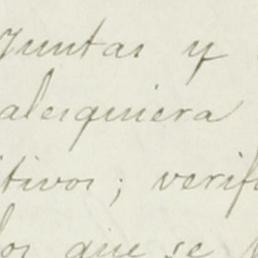 Juntas y
alesquiera
itivos; verif
los que se